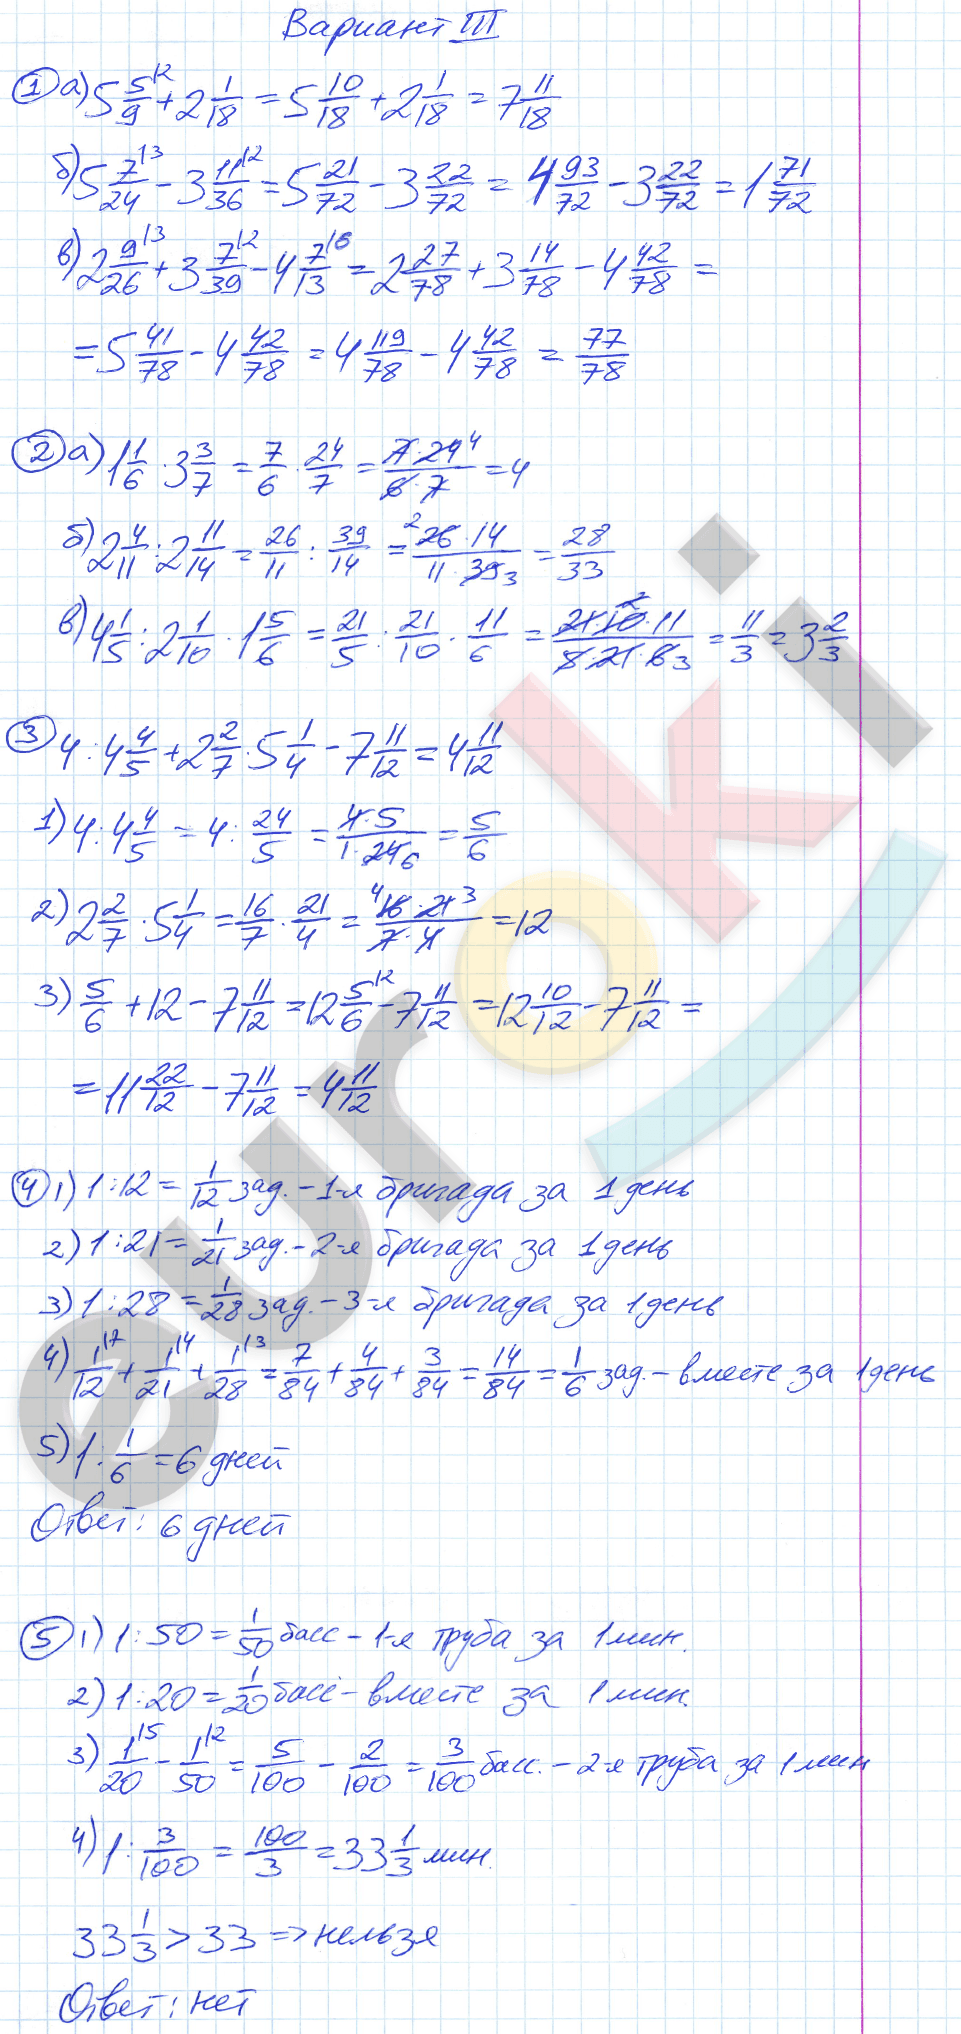 Вариант III
① а) 5 5/9^\2 + 2 1/18 = 5 10/18 + 2 1/18 = 7 11/18
б) 5 7/24^\3 - 3 11/36^\2 = 5 21/72 - 3 22/72 = 4 93/72 - 3 22/72 = 1 71/72
в) 2 9/26^\3 + 3 7/39^\2 - 4 7/13^\6 = 2 27/78 + 3 14/78 - 4 42/78 =
= 5 41/78 - 4 42/78 = 4 119/78 - 4 42/78 = 77/78
② а) 1 1/6 · 3 3/7 = 7/6 · 24/7 = 7·24 4/6·7 = 4
б) 2 4/11 : 2 11/14 = 26/11 : 39/14 = 2 26·14/11·39 3 = 28/33
в) 4 1/5 : 2 1/10 · 1 5/6 = 21/5 : 21/10 · 11/6 = 21·10 2·11/5·21·6 3 = 11/3 = 3 2/3
③ 4 : 4 4/5 + 2 2/7 · 5 1/4 - 7 11/12 = 4 11/12
1) 4 : 4 4/5 = 4 : 24/5 = 4·5/1·24 6 = 5/6
2) 2 2/7 · 5 1/4 = 16/7 · 21/4 = 4 16·21 3/7·4 = 12
3) 5/6 + 12 - 7 11/12 = 12 5/6^\2 - 7 11/12 = 12 10/12 - 7 11/12 =
= 11 22/12 - 7 11/12 = 4 11/12
④ 1) 1 : 12 = 1/12 зад. - 1-я бригада за 1 день
2) 1 : 21 = 1/21 зад. - 2-я бригада за 1 день
3) 1 : 28 = 1/28 зад. - 3-я бригада за 1 день
4) 1/12^\7 + 1/21^\4 + 1/28^\3 = 7/84 + 4/84 + 3/84 = 14/84 = 1/6 зад. - вместе за 1 день
5) 1 : 1/6 = 6 дней
Ответ: 6 дней
⑤ 1) 1 : 50 = 1/50 басс - 1-я труба за 1 мин.
2) 1 : 20 = 1/20 басс - вместе за 1 мин.
3) 1/20^\5 - 1/50^\2 = 5/100 - 2/100 = 3/100 басс. - 2-я труба за 1 мин
4) 1 : 3/100 = 100/3 = 33 1/3 мин.
33 1/3 > 33 => нельзя
Ответ: нет
euroki